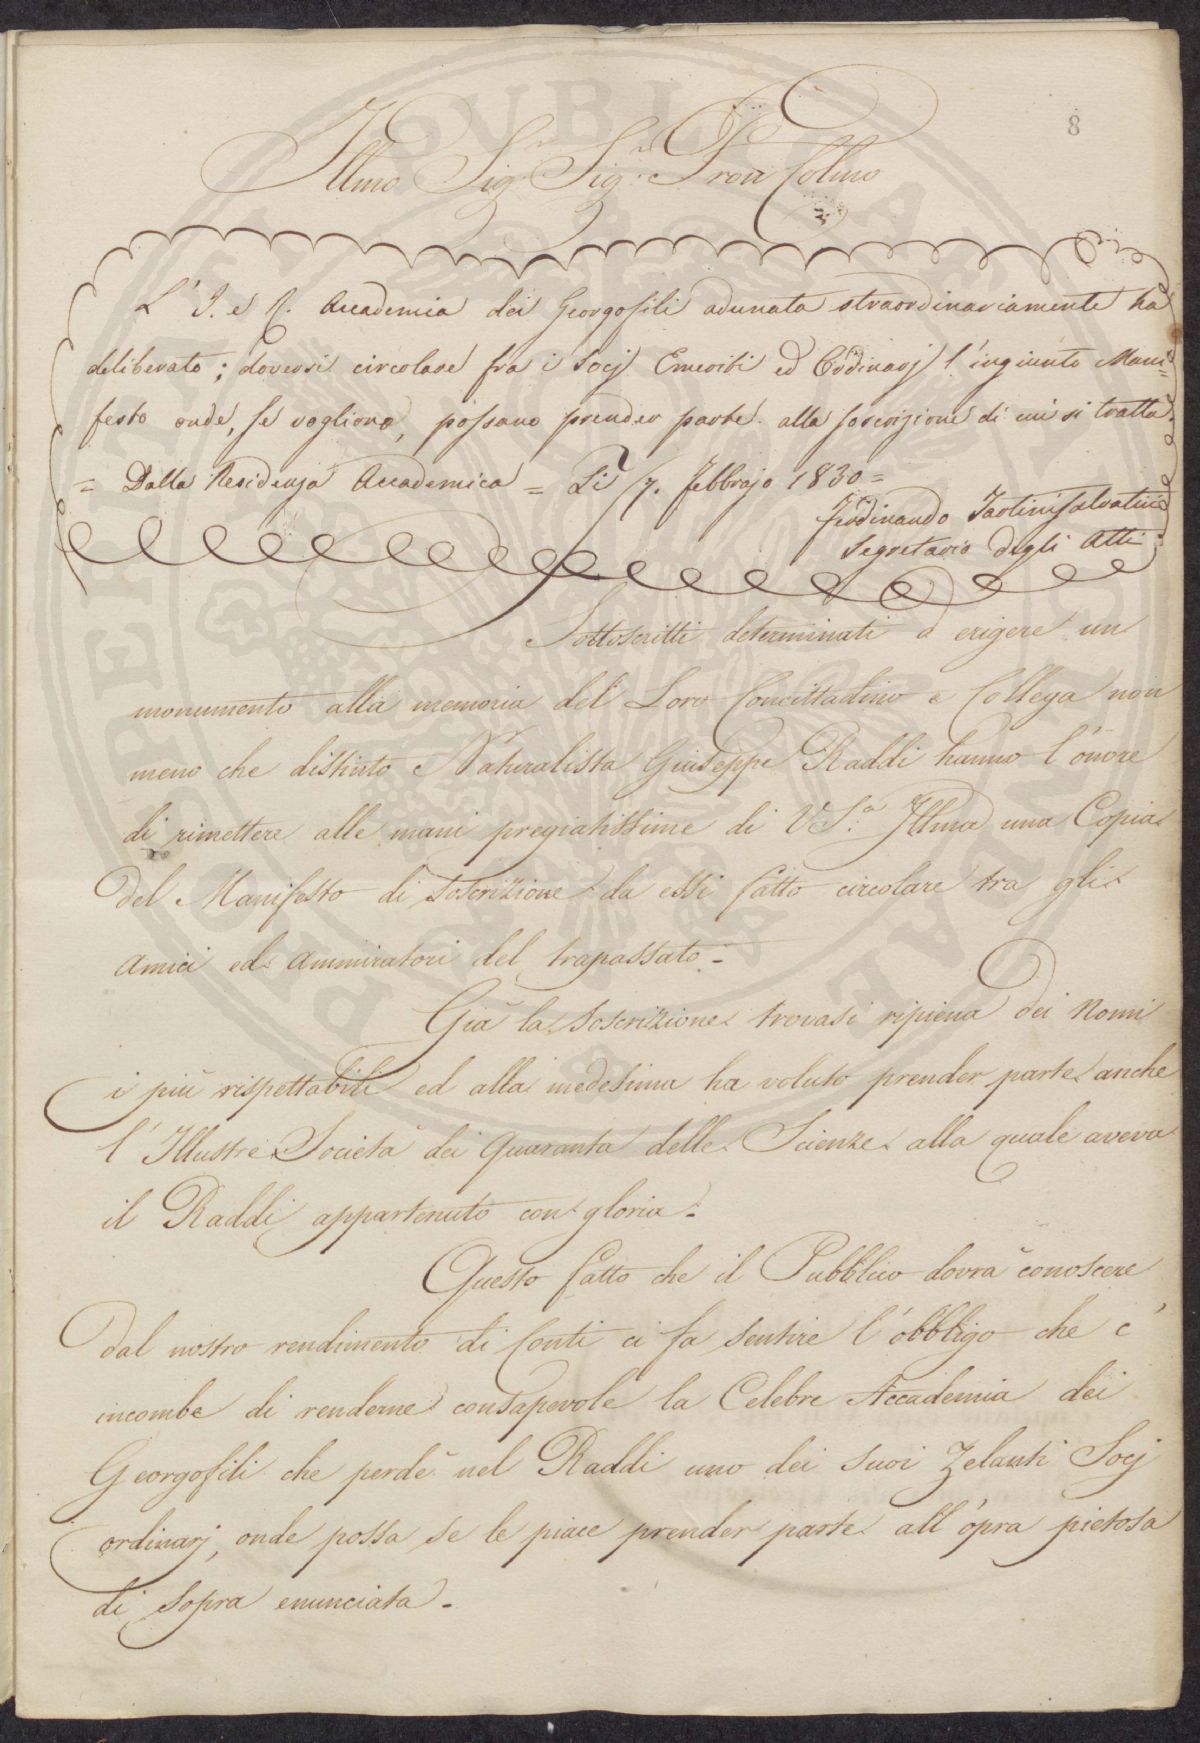 8
Illmo Sig.r Sig.r Pron Colmo
L'I. e R. Accademia dei Georgofili adunata straordinariamente ha
deliberato; doversi circolare fra i Socj Emeriti ed Ordinarj l'ingiunto Mani=
festo onde, se vogliono, possano prender parte alla soscrizione di cui si tratta.
= Dalla Residenza Accademica = Li 7. Febbrajo 1830 =
Ferdinando Tartini Salvatici
Segretario degli Atti
I Sottoscritti determinati d'erigere un
monumento alla memoria del Loro Concittadino e Collega non
meno che distinto Naturalista Giuseppe Raddi hanno l'onore
di rimettere alle mani pregiatissime di V S.a Illma una Copia
del Manifesto di soscrizione da essi fatto circolare tra gli
amici ed ammiratori del trapassato.=
Già la soscrizione trovasi ripiena dei Nomi
i più rispettabili ed alla medesima ha voluto prender parte anche
l'Illustre Società dei Quaranta delle Scienze alla quale aveva
il Raddi appartenuto con gloria.=
Questo fatto che il Pubblico dovrà conoscere
dal nostro rendimento di Conti ci fa sentire l'obbligo che c'
incombe di renderne consapevole la Celebre Accademia dei
Georgofili che perdè nel Raddi uno dei suoi Zelanti Socj
ordinarj, onde possa se le piace prender parte all'opra pietosa
di sopra enunciata.=